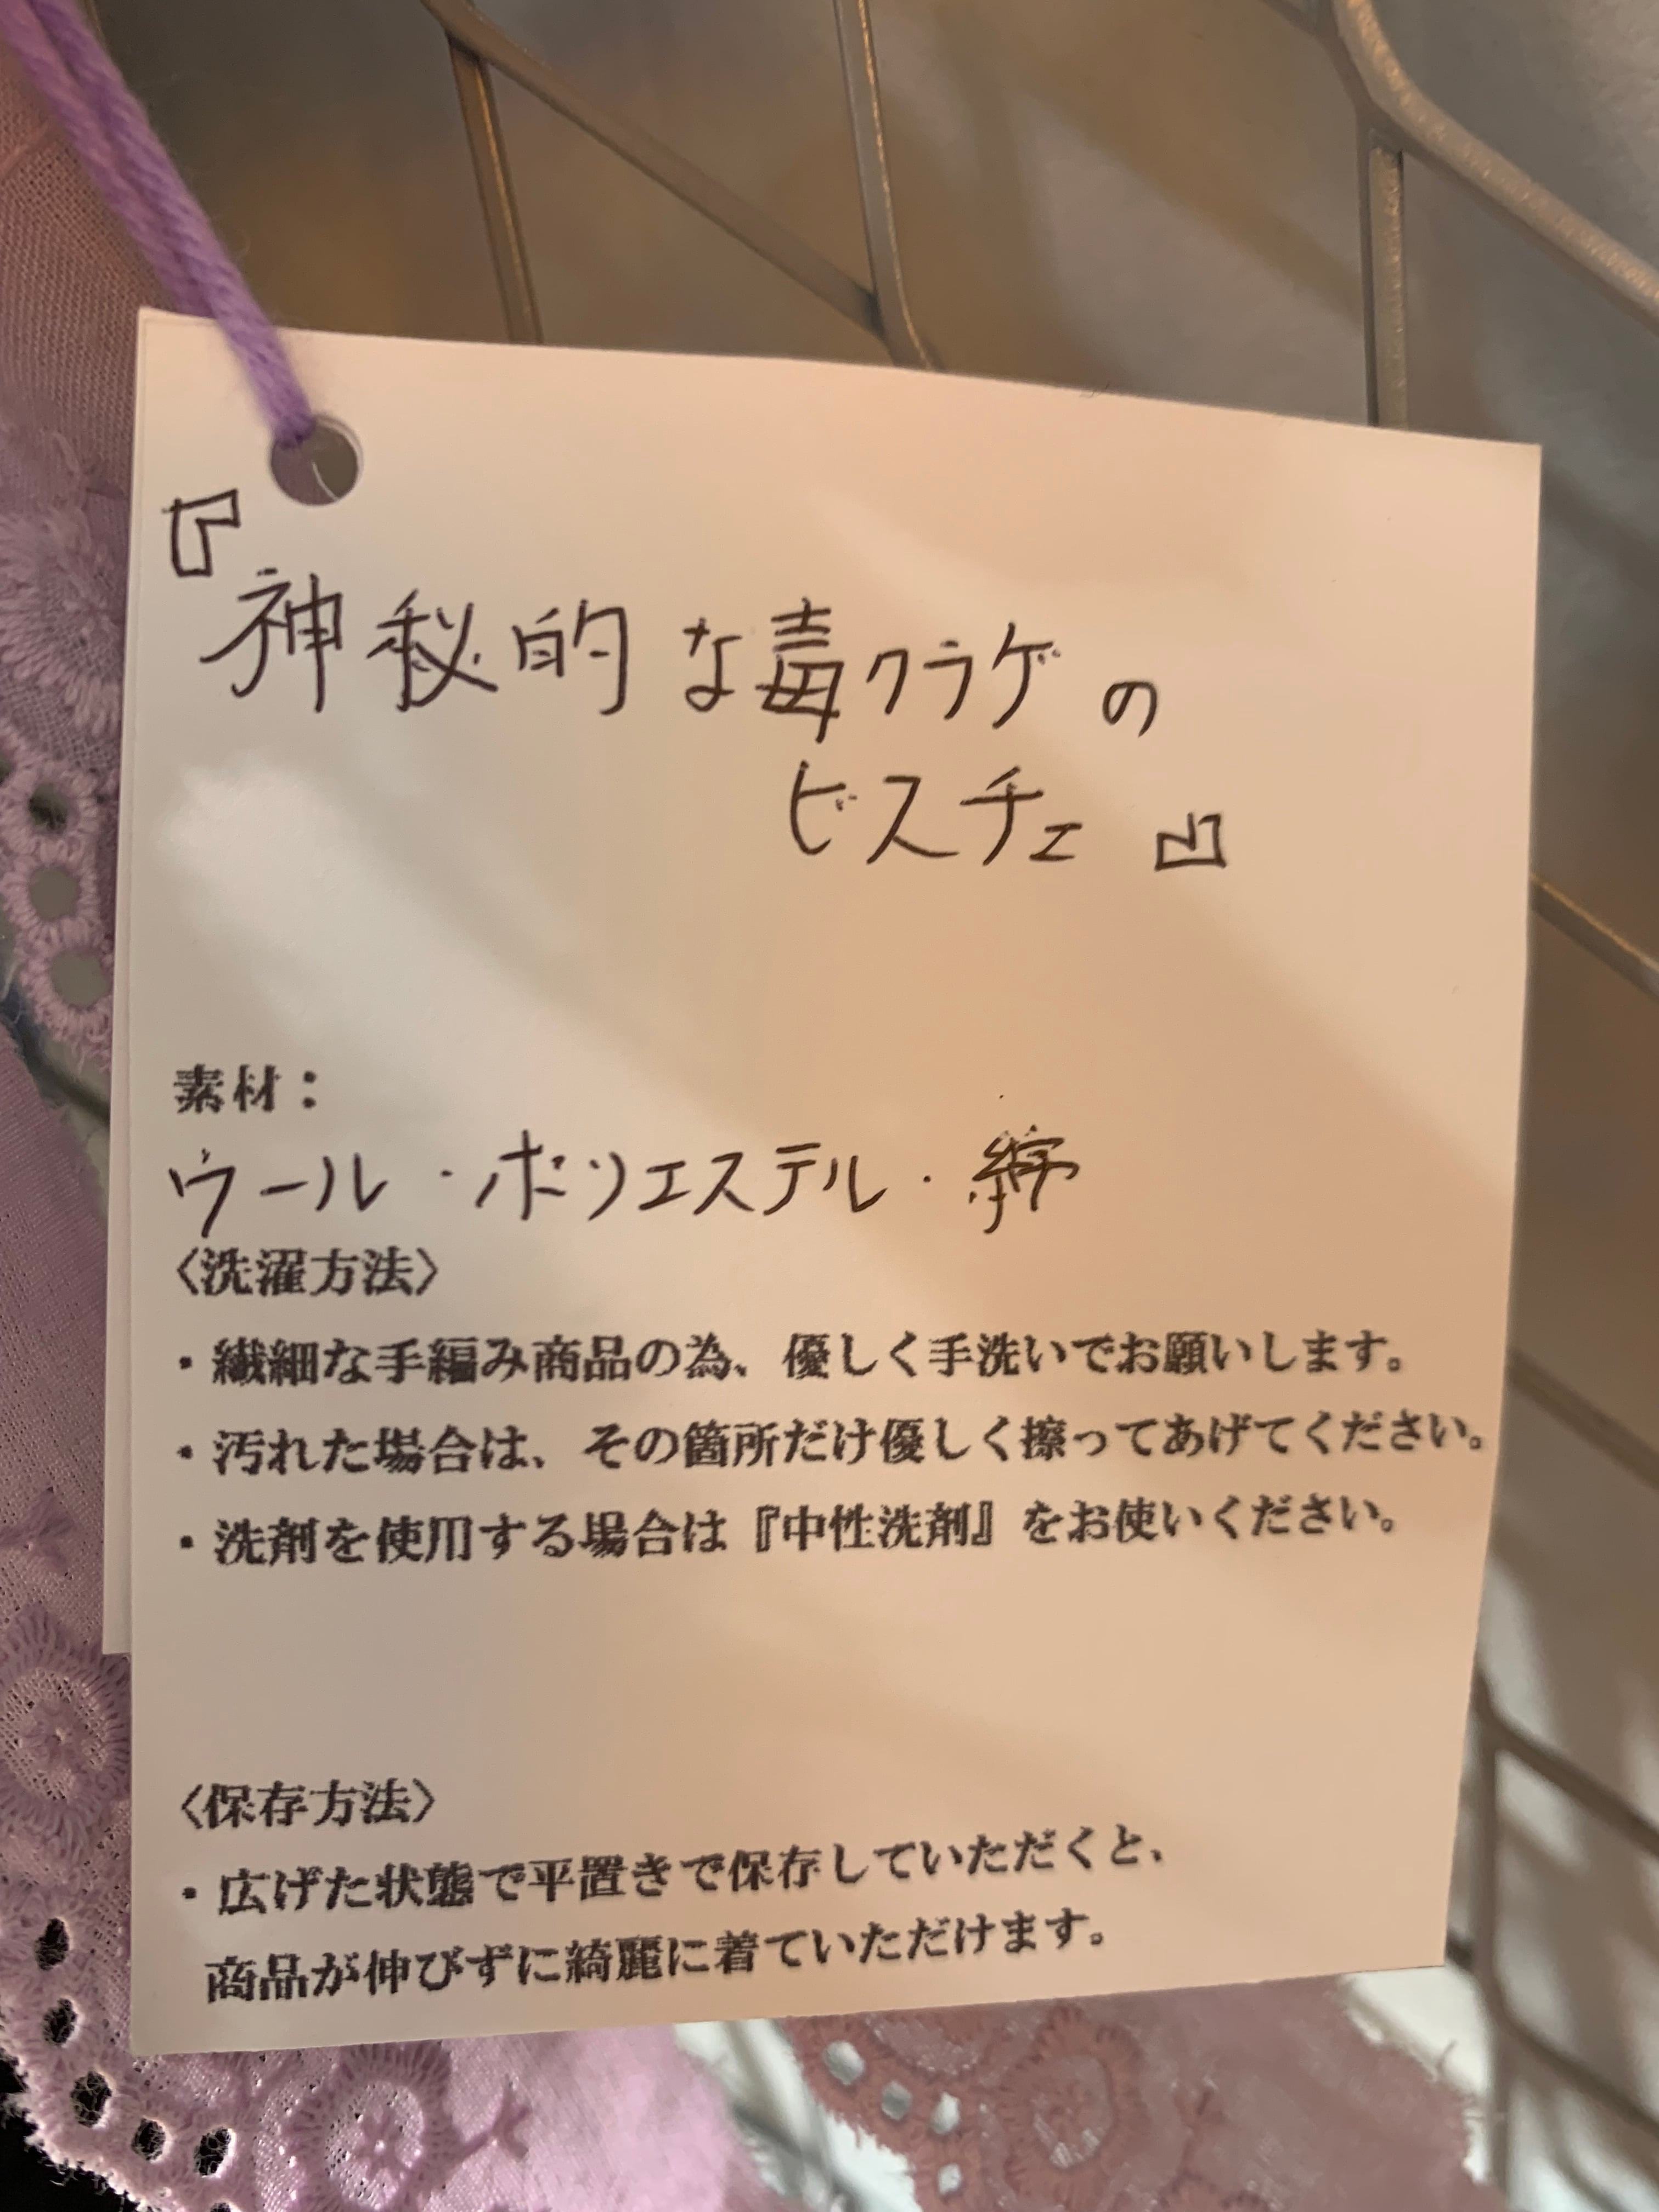 『神秘的な毒クラゲの
ビスチェ』
素材：
ウール・ポリエステル・綿
〈洗濯方法〉
・繊細な手編み商品の為、優しく手洗いでお願いします。
・汚れた場合は、その箇所だけ優しく擦ってあげてください。
・洗剤を使用する場合は『中性洗剤』をお使いください。
〈保存方法〉
・広げた状態で平置きで保存していただくと、
商品が伸びずに綺麗に着ていただけます。